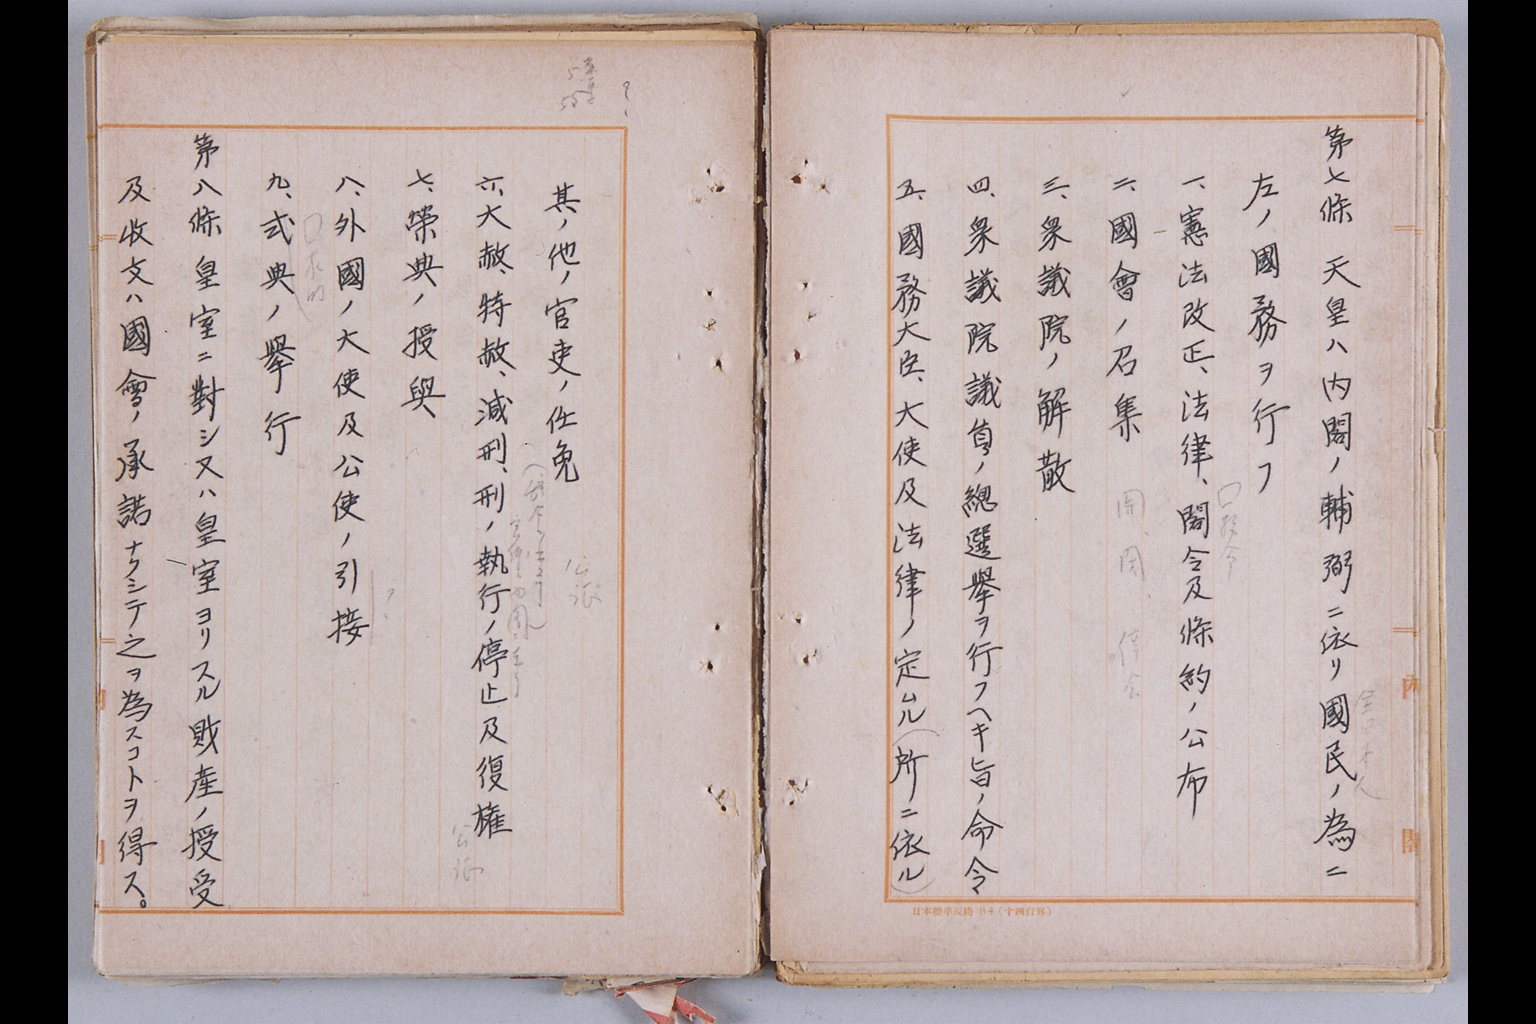 第七條 天皇ハ内閣ノ輔弼ニ依リ國民ノ為ニ
左ノ國務ヲ行フ
一、憲法改正、法律、閣令及條約ノ公布
二、國會ノ召集
開、閉、停会
三、衆議院ノ解散
四、衆議院議員ノ總選擧ヲ行フヘキ旨ノ命令
五、國務大臣、大使及法律ノ定ムル(所ニ依ル)
日本標準規格 B4(十四行罫)
内閣
其ノ他ノ官吏ノ任免
六、大赦、特赦、減刑、刑ノ執行ノ停止及復権
七、榮典ノ授與
八、外國ノ大使及公使ノ引接
九、式典ノ擧行
第八條 皇室ニ對シ又ハ皇室ヨリスル財産ノ授受
及收支ハ國會ノ承諾ナクシテ之ヲ為スコトヲ得ス。